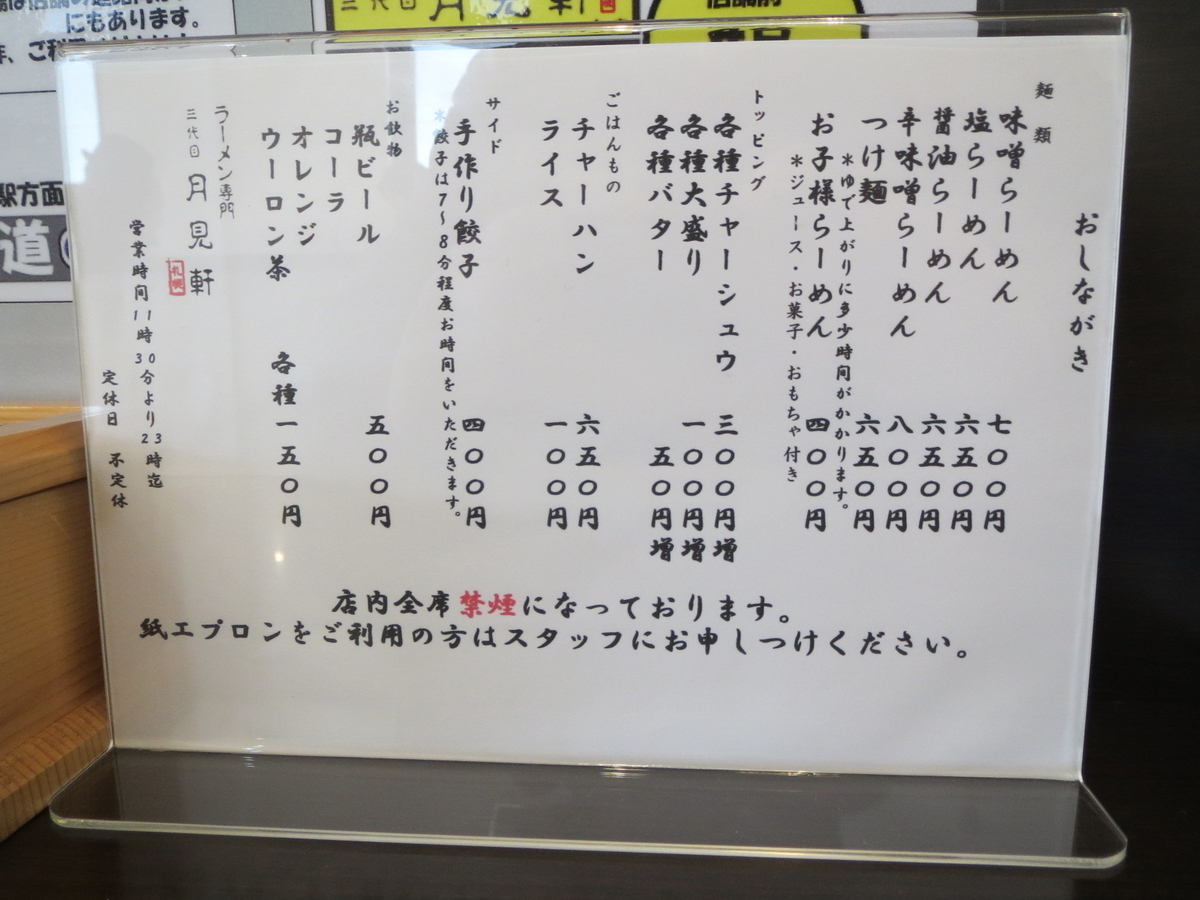 おしながき
麺類
味噌らーめん 七〇〇円
塩らーめん 六五〇円
醤油らーめん 六五〇円
辛味噌らーめん 八〇〇円
つけ麺 六五〇円
＊ゆで上がりに多少時間がかかります。
お子様らーめん 四〇〇円
＊ジュース・お菓子・おもちゃ付き
トッピング
各種チャーシュウ 三〇〇円増
各種大盛り 一〇〇円増
各種バター 五〇円増
ごはんもの
チャーハン 六五〇円
ライス 一〇〇円
サイド
手作り餃子 四〇〇円
＊餃子は7～8分程度お時間をいただきます。
お飲物
瓶ビール 五〇〇円
コーラ
オレンジ
ウーロン茶 各種一五〇円
ラーメン専門
三代目 月見軒
札幌
営業時間11時30分より23時迄
定休日 不定休
店内全席禁煙になっております。
紙エプロンをご利用の方はスタッフにお申しつけください。
にもあります。
駅方面
道
三代目 月見軒
店舗前